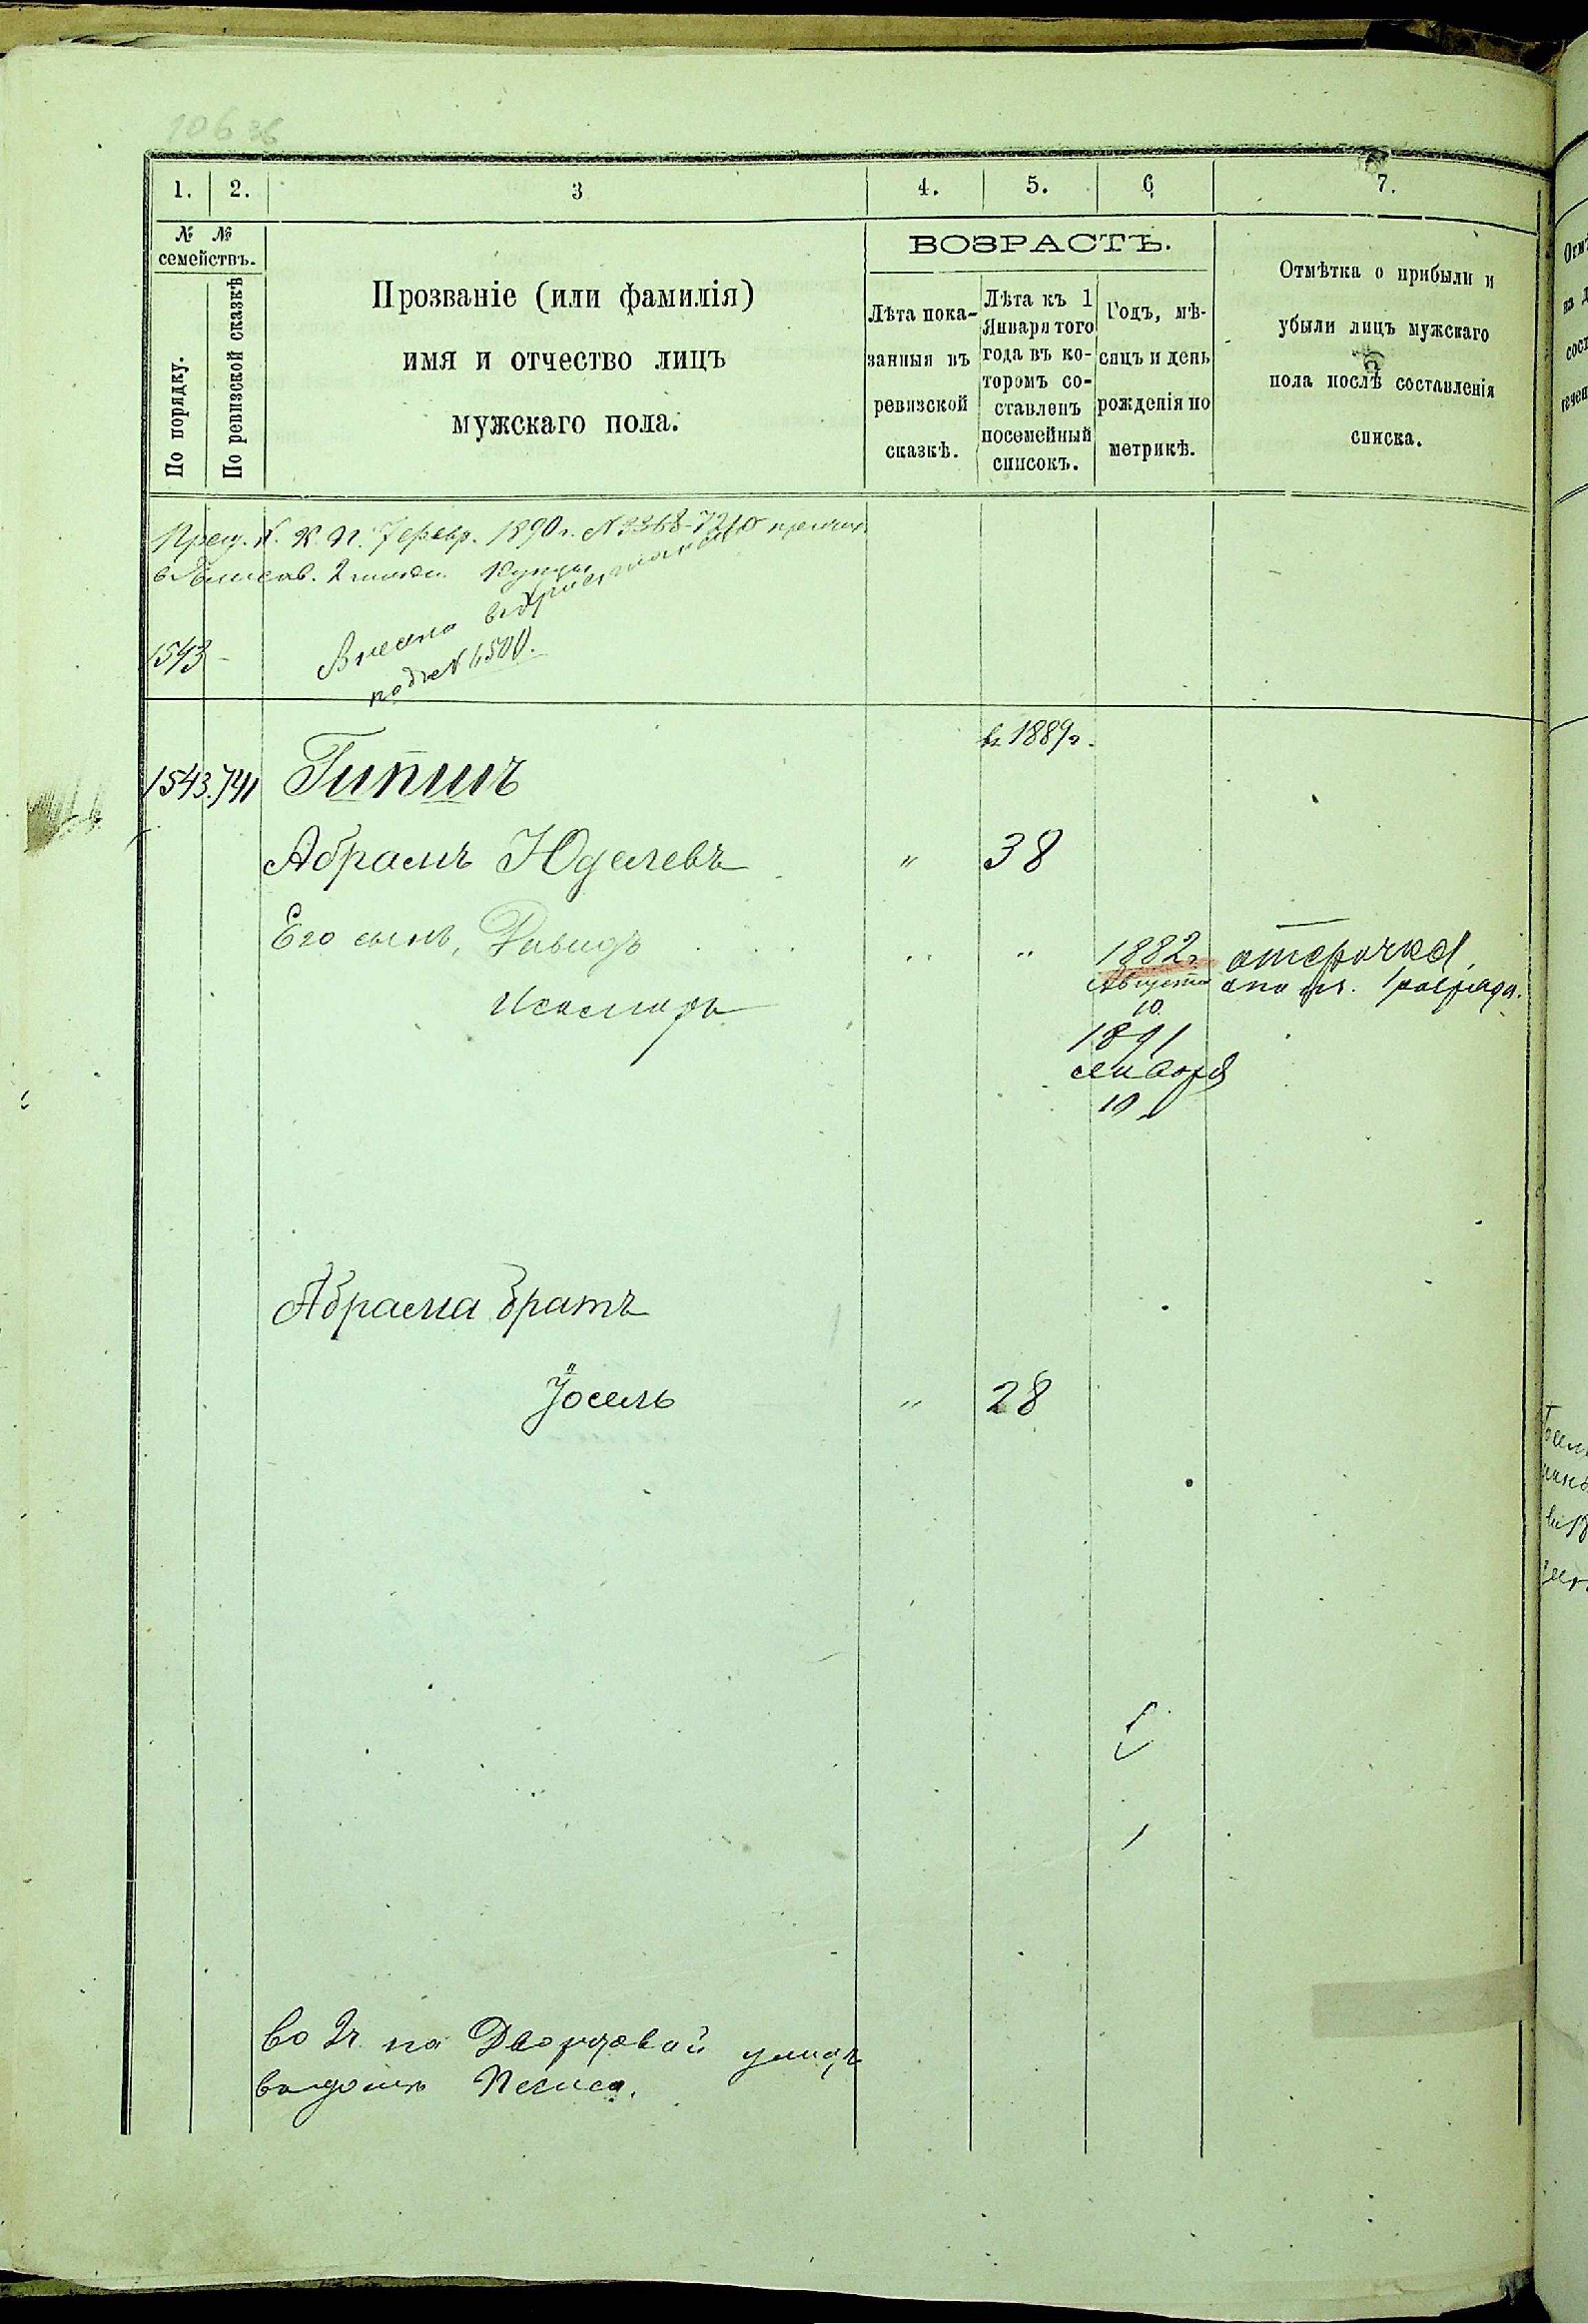 106 об
1. 2. 3 4. 5. 6 7.
№ №
семействъ.
По порядку.
По ревизской сказкѣ
Прозваніе (или фамилія)
имя и отчество лицъ
мужскаго пола.
ВОЗРАСТЪ.
Лѣта пока-
занныя въ
ревизской
сказкѣ.
Лѣта къ 1
Января того
года въ ко-
торомъ со-
ставленъ
посемейный
списокъ.
Годъ, мѣ-
сяцъ и день
рожденія по
метрикѣ.
Отмѣтка о прибыли и
убыли лицъ мужскаго
пола послѣ составленія
списка.
К. П. 7 февр. 1890 г. №
2 купцы
1543 -
Внесено
под № 6500.
въ 1889 г.
1543. 741 Гипшъ
Абрамъ Юделевъ " 38
Его сынъ, Давидъ " " 1882 г. отсрочка
Августа по 1 разряда.
10.
Исамаръ
1891
января
10
Абрама братъ
Іосель " 28
во 2 ч. на Дворцовой улицѣ
въ домѣ